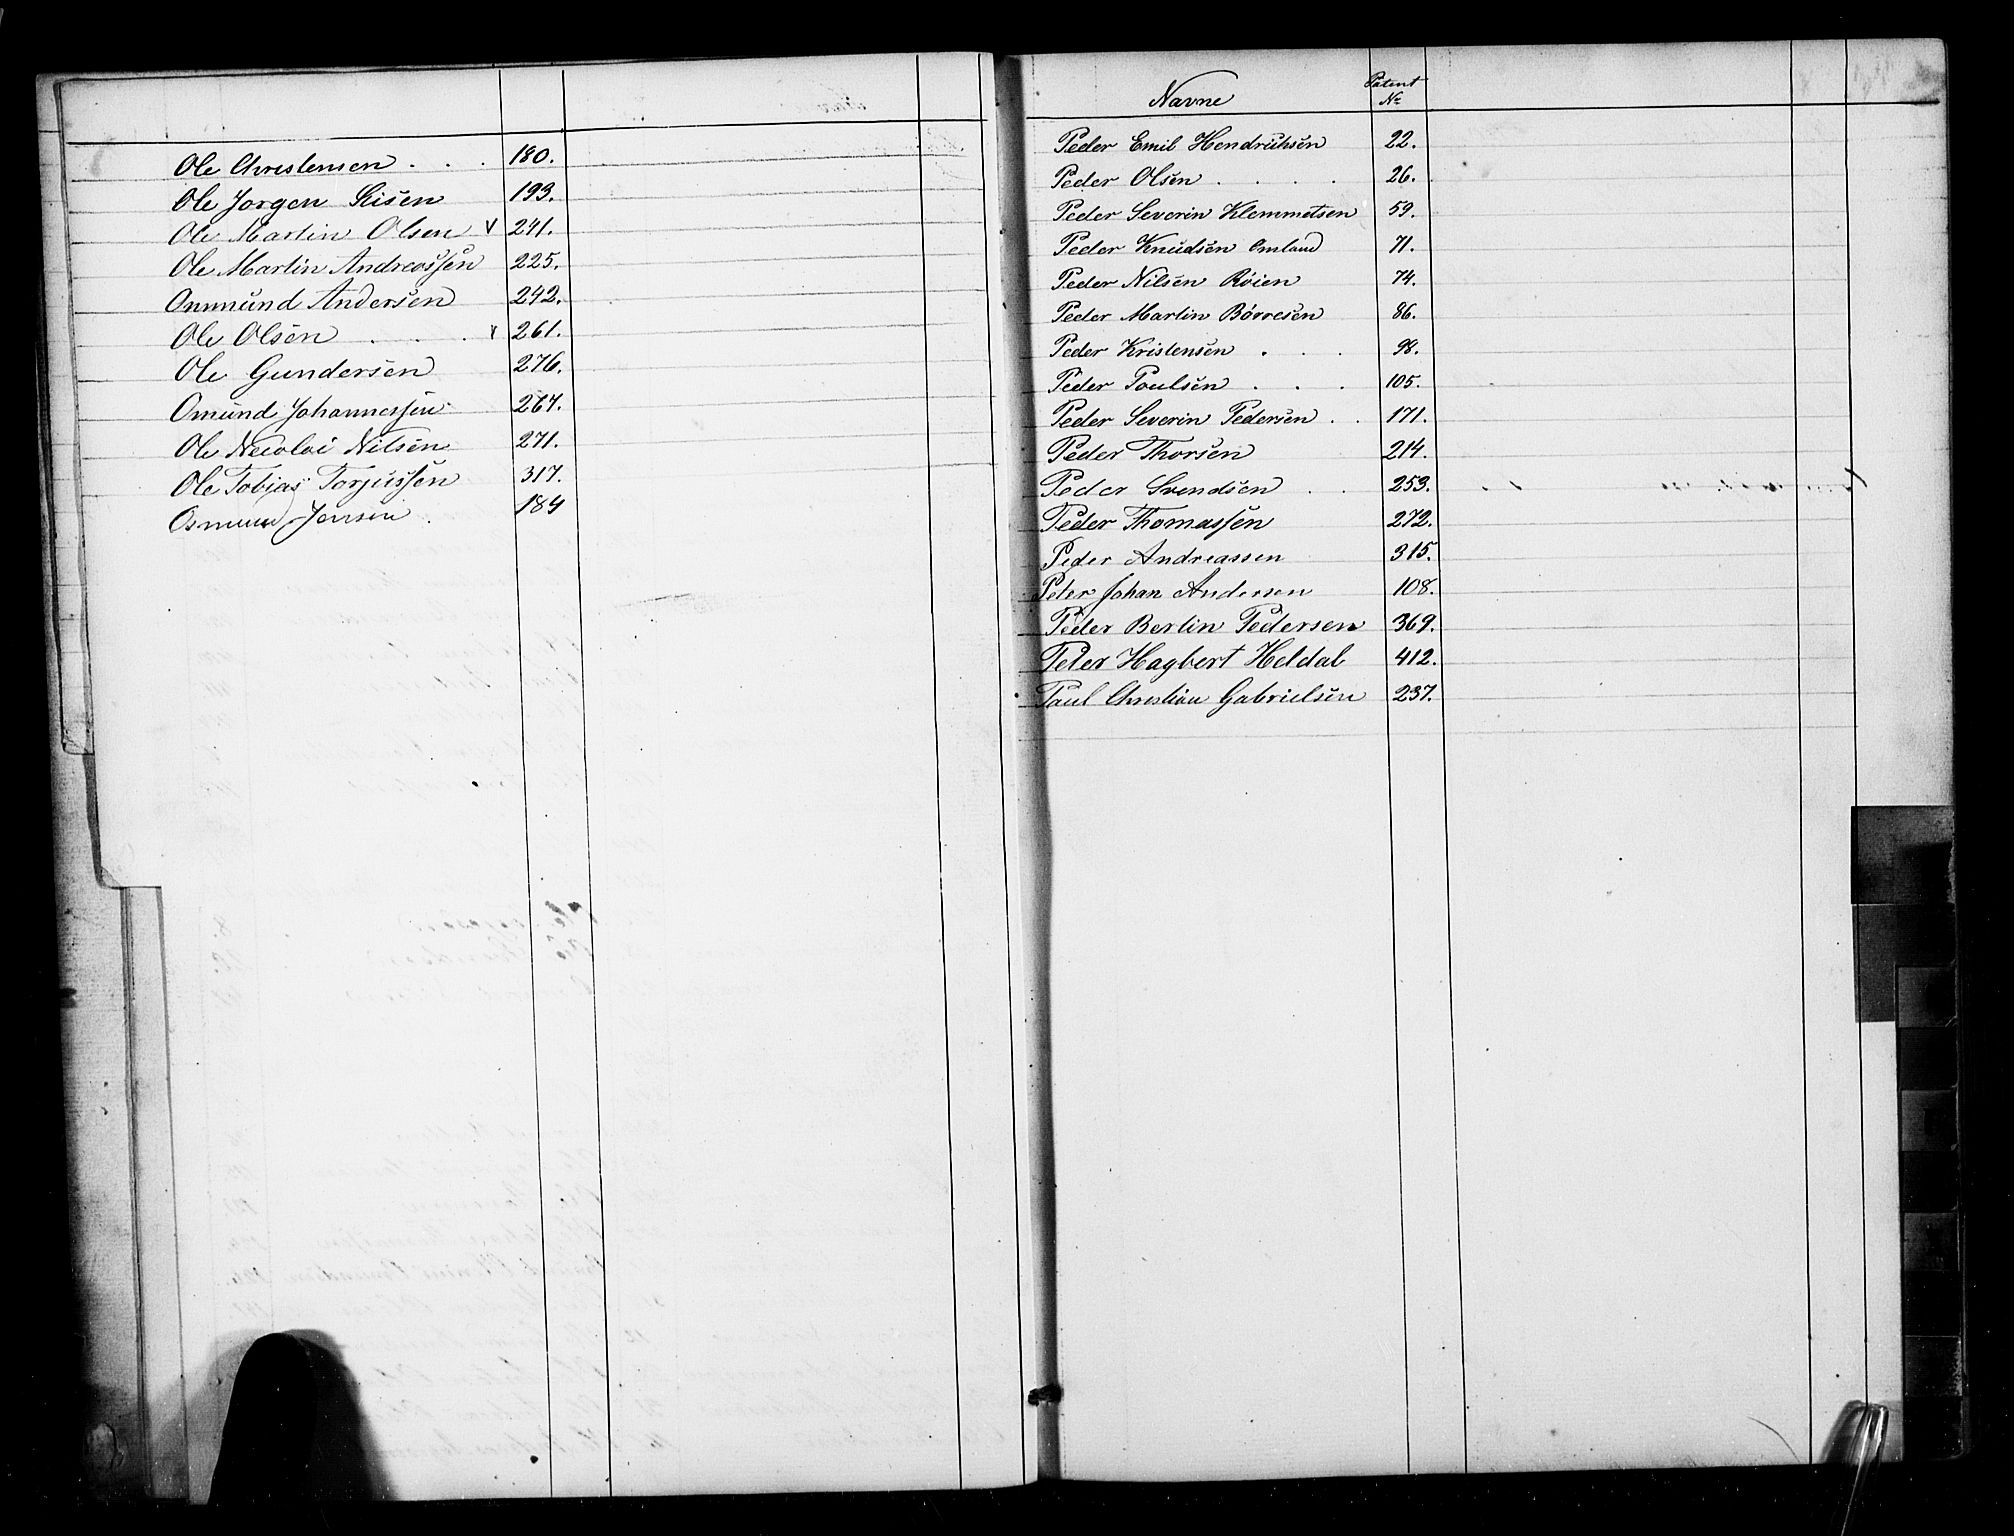 Ole Christensen . . . 180.
Ole Jorgen Sisen 193.
Ole Martin Olsen V 241.
Ole Martin Andreassen 225.
Ommund Andersen 242.
Ole Olsen . . . V 261.
Ole Gundersen 276.
Omund Johannessen 267.
Ole Necolai Nilsen 271.
Ole Tobias Torjussen 317.
Osmund Jensen . 184
Navne Patent No
Peder Emil Hendriksen 22.
Peder Olsen . . . . 26.
Peder Severin Klemmetsen 59.
Peder Knudsen Omland 71.
Peder Nilsen Röien 74.
Peder Martin Börresen 86.
Peder Kristensen . . . 98.
Peder Poulsen . . . 105.
Peder Severin Pedersen . . 171.
Peder Thorsen 214.
Peder Svendsen . . 253.
Peder Thomassen 272.
Peder Andreassen 315.
Peter Johan Andersen 108.
Peder Berlin Pedersen 369.
Peter Hagbert Heldal 412.
Paul Christian Gabrielsen 237.